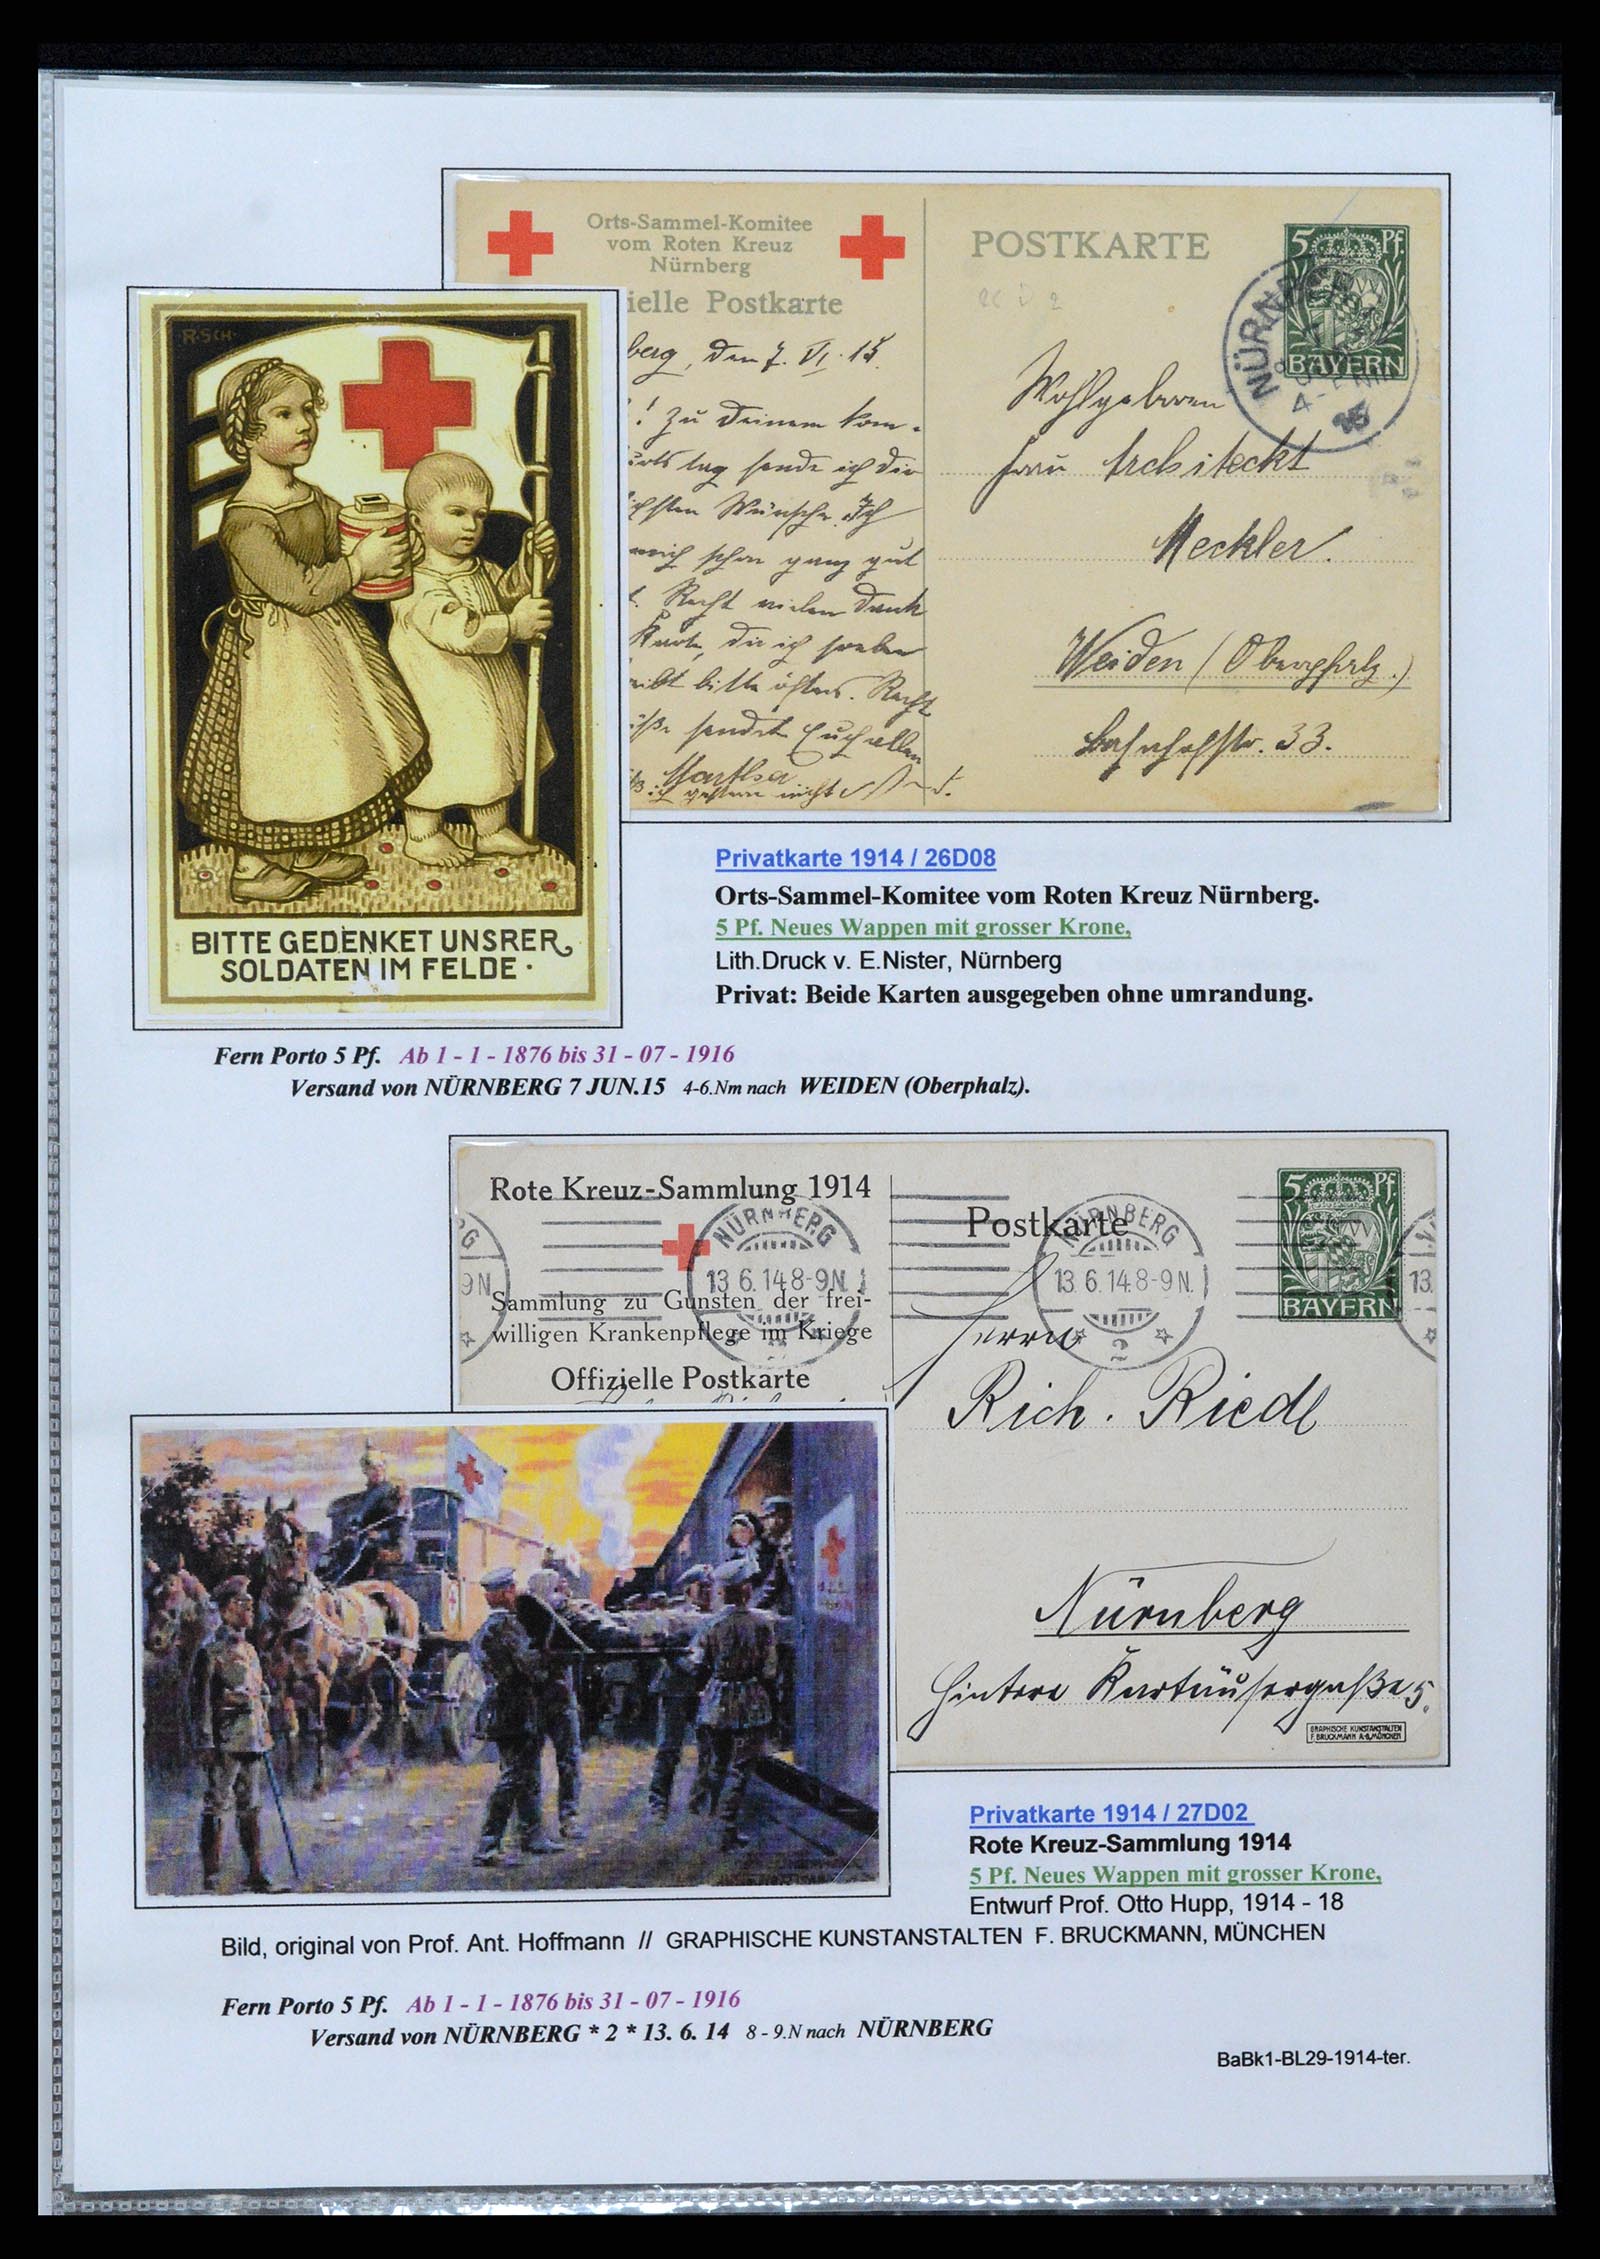 Orts-Sammel-Komitee
vom Roten Kreuz
Nürnberg
ielle Postkarte
POSTKARTE
5 Pf.
BAYERN
NÜRN
4-
15
berg, den 7. VI. 15.
! Zu Deinem kom-
urtstag sende ich Dir
ichsten Wünsche. Ich
mich schon ganz gut
t. Recht vielen Dank
Karte, die ich soeben
eibt bitte öfters. Recht
üße sendet Euch allen
Martha.
ich gestern nicht
Wohlgeboren
Frau Architeckt
Meckler.
Weiden (Oberpfalz.)
Bahnhofstr. 33.
R·SCH·
BITTE GEDENKET UNSRER
SOLDATEN IM FELDE·
Privatkarte 1914 / 26D08
Orts-Sammel-Komitee vom Roten Kreuz Nürnberg.
5 Pf. Neues Wappen mit grosser Krone,
Lith.Druck v. E.Nister, Nürnberg
Privat: Beide Karten ausgegeben ohne umrandung.
Fern Porto 5 Pf. Ab 1 - 1 - 1876 bis 31 - 07 - 1916
Versand von NÜRNBERG 7 JUN.15 4-6.Nm nach WEIDEN (Oberphalz).
Rote Kreuz-Sammlung 1914
Sammlung zu Gunsten der frei-
willigen Krankenpflege im Kriege
Offizielle Postkarte
Postkarte
5 Pf.
BAYERN
G
9N.
NÜRNBERG
13.6.14.8-9N.
2
NÜRNBERG
13.6.14.8-9N.
2
13.
Herrn
Rich. Riedl
Nürnberg
Hintere Kartäusergaße 5.
GRAPHISCHE KUNSTANSTALTEN
F. BRUCKMANN A.-G., MÜNCHEN
Privatkarte 1914 / 27D02
Rote Kreuz-Sammlung 1914
5 Pf. Neues Wappen mit grosser Krone,
Entwurf Prof. Otto Hupp, 1914 - 18
Bild, original von Prof. Ant. Hoffmann // GRAPHISCHE KUNSTANSTALTEN F. BRUCKMANN, MÜNCHEN
Fern Porto 5 Pf. Ab 1 - 1 - 1876 bis 31 - 07 - 1916
Versand von NÜRNBERG * 2 * 13. 6. 14 8 - 9.N nach NÜRNBERG
BaBk1-BL29-1914-ter.